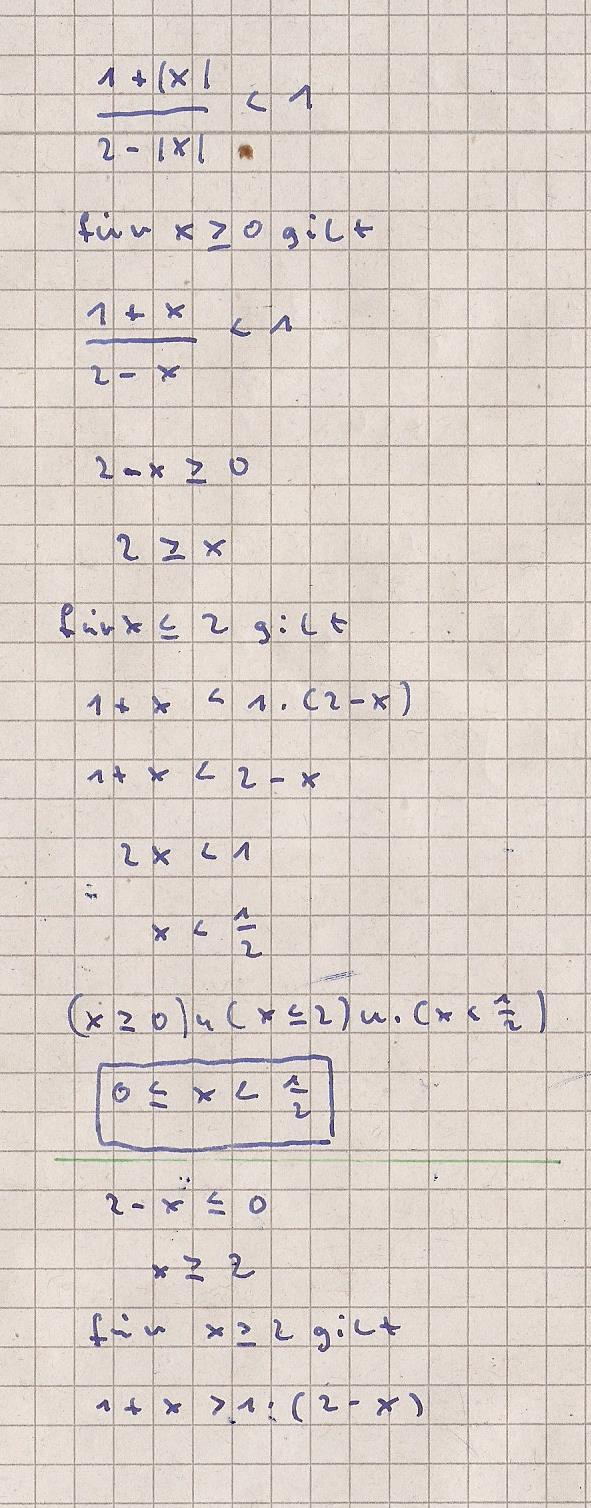 1 + |x|
2 - |x| < 1
für x ≥ 0 gilt
1 + x
2 - x < 1
2 - x ≥ 0
2 ≥ x
für x ≤ 2 gilt
1 + x < 1 · (2 - x)
1 + x < 2 - x
2x < 1
x < 1/2
(x ≥ 0) u (x ≤ 2) u. (x < 1/2)
0 ≤ x < 1/2
2 - x ≤ 0
x ≥ 2
für x ≥ 2 gilt
1 + x > 1 · (2 - x)